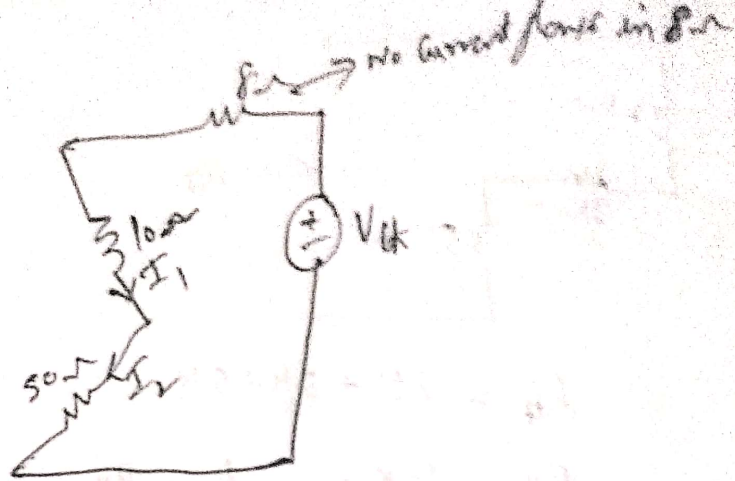 8Ω → No Current flows in 8Ω
10Ω
I₁
+
-
Vth
50Ω
I₂